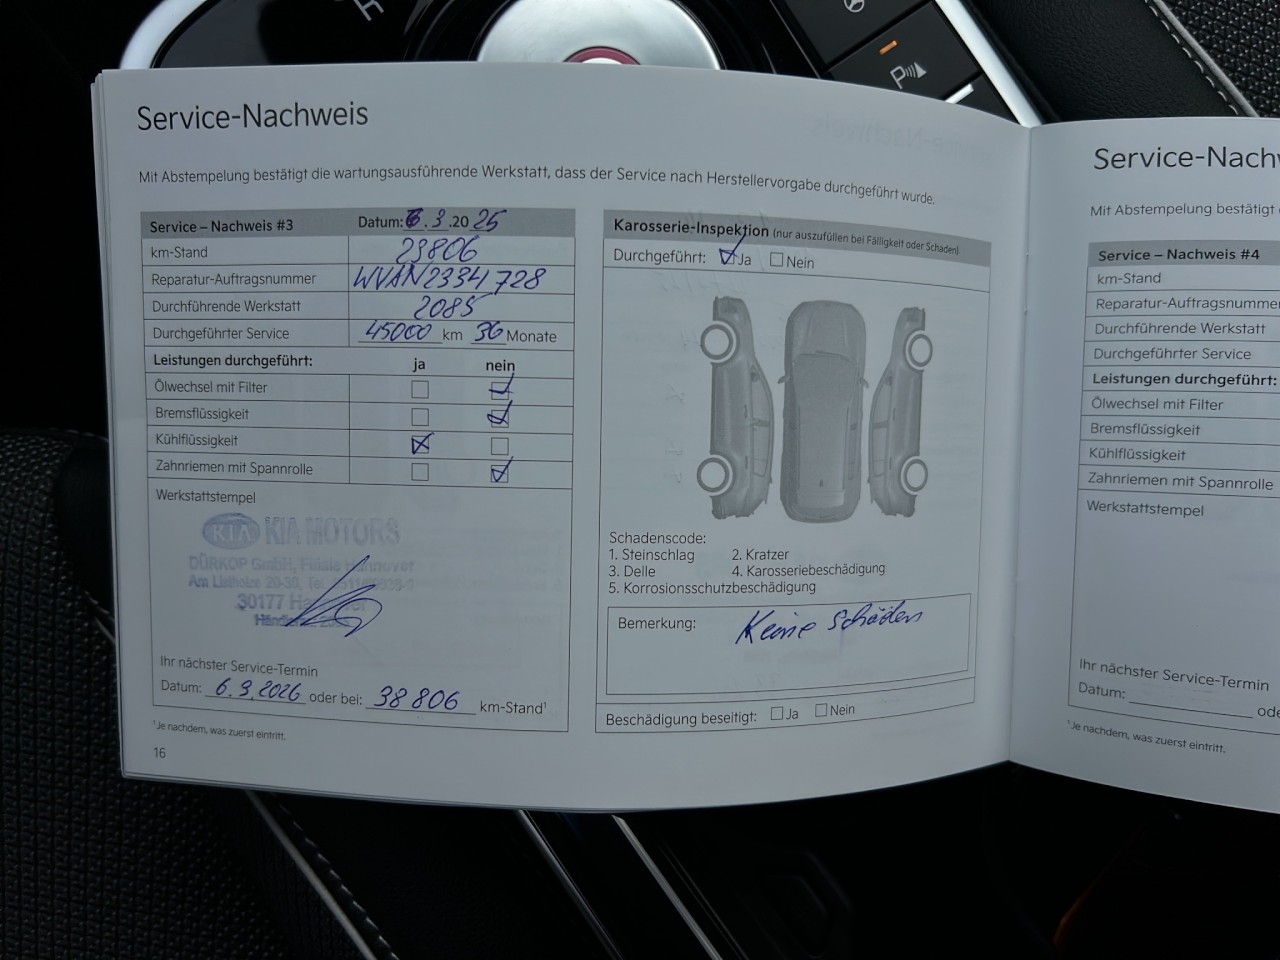 R
P
Service-Nachweis
Mit Abstempelung bestätigt die wartungsausführende Werkstatt, dass der Service nach Herstellervorgabe durchgeführt wurde.
Service – Nachweis #3 Datum: 6.3.2025
km-Stand 23806
Reparatur-Auftragsnummer WVAN2334728
Durchführende Werkstatt 2085
Durchgeführter Service 45000 km 36 Monate
Leistungen durchgeführt: ja nein
Ölwechsel mit Filter
Bremsflüssigkeit
Kühlflüssigkeit
Zahnriemen mit Spannrolle
Werkstattstempel
KIA KIA MOTORS
DÜRKOP GmbH, Filiale Hannover
Am Listholze 20-30, Tel.
30177
Ihr nächster Service-Termin
Datum: 6.3.2026 oder bei: 38806 km-Stand¹
¹Je nachdem, was zuerst eintritt.
16
Karosserie-Inspektion (nur auszufüllen bei Fälligkeit oder Schäden)
Durchgeführt: Ja Nein
Schadenscode:
1. Steinschlag 2. Kratzer
3. Delle 4. Karosseriebeschädigung
5. Korrosionsschutzbeschädigung
Bemerkung: Keine Schäden
Beschädigung beseitigt: Ja Nein
Service-Nachw
Mit Abstempelung bestätigt
Service – Nachweis #4
km-Stand
Reparatur-Auftragsnummer
Durchführende Werkstatt
Durchgeführter Service
Leistungen durchgeführt:
Ölwechsel mit Filter
Bremsflüssigkeit
Kühlflüssigkeit
Zahnriemen mit Spannrolle
Werkstattstempel
Ihr nächster Service-Termin
Datum: ode
¹Je nachdem, was zuerst eintritt.